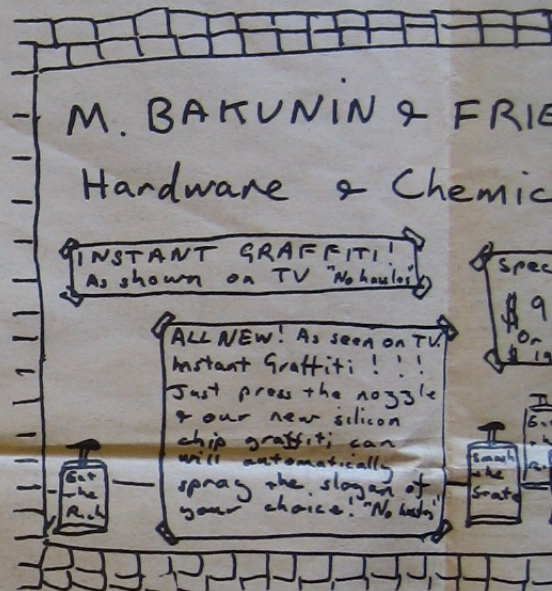 M. BAKUNIN & FRIE
Hardware & Chemic
INSTANT GRAFFITI!
As shown on TV "No hassles"
Spec
$ 9
Or
$ 19
ALL NEW! As seen on TV.
Instant Graffiti!!!
Just press the nozzle
& our new silicon
chip graffiti can
will automatically
spray the slogan of
your choice! "No hassles"
Eat
the
Rich
Smash
the
State